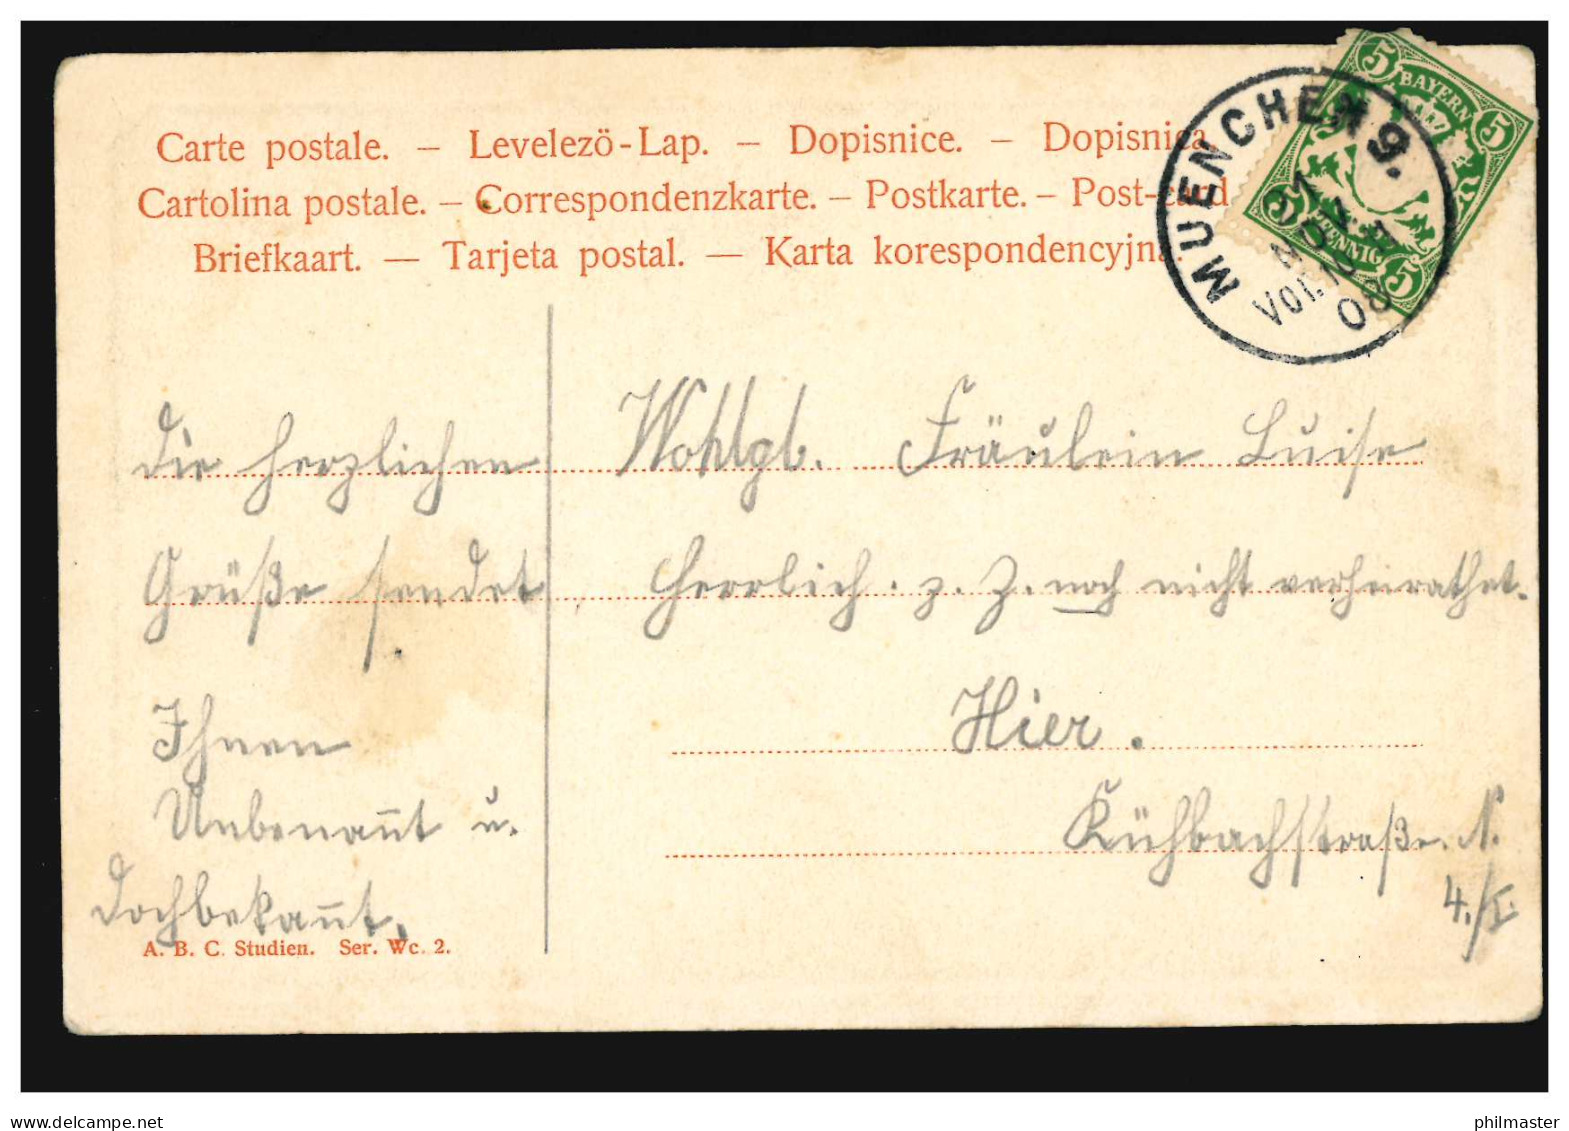 Carte postale. – Levelezö-Lap. – Dopisnice. – Dopisnica.
Cartolina postale. – Correspondenzkarte. – Postkarte. – Post-card
Briefkaart. — Tarjeta postal. — Karta korespondencyjna.
MUENCHEN 9.
NOV.
VOR.
08
5 5
BAYERN
PFENNIG
5 5
Die herzlichen
Grüße sendet
Ihnen
Unbenan̅t u.
dochbekan̅t.
Wohlgb. Fräulein Luise
Herrlich. z. Z. noch nicht verheirathet.
Hier.
Kühbachstraße. N.
4./I.
A. B. C. Studien. Ser. Wc. 2.
www.delcampe.net
philmaster